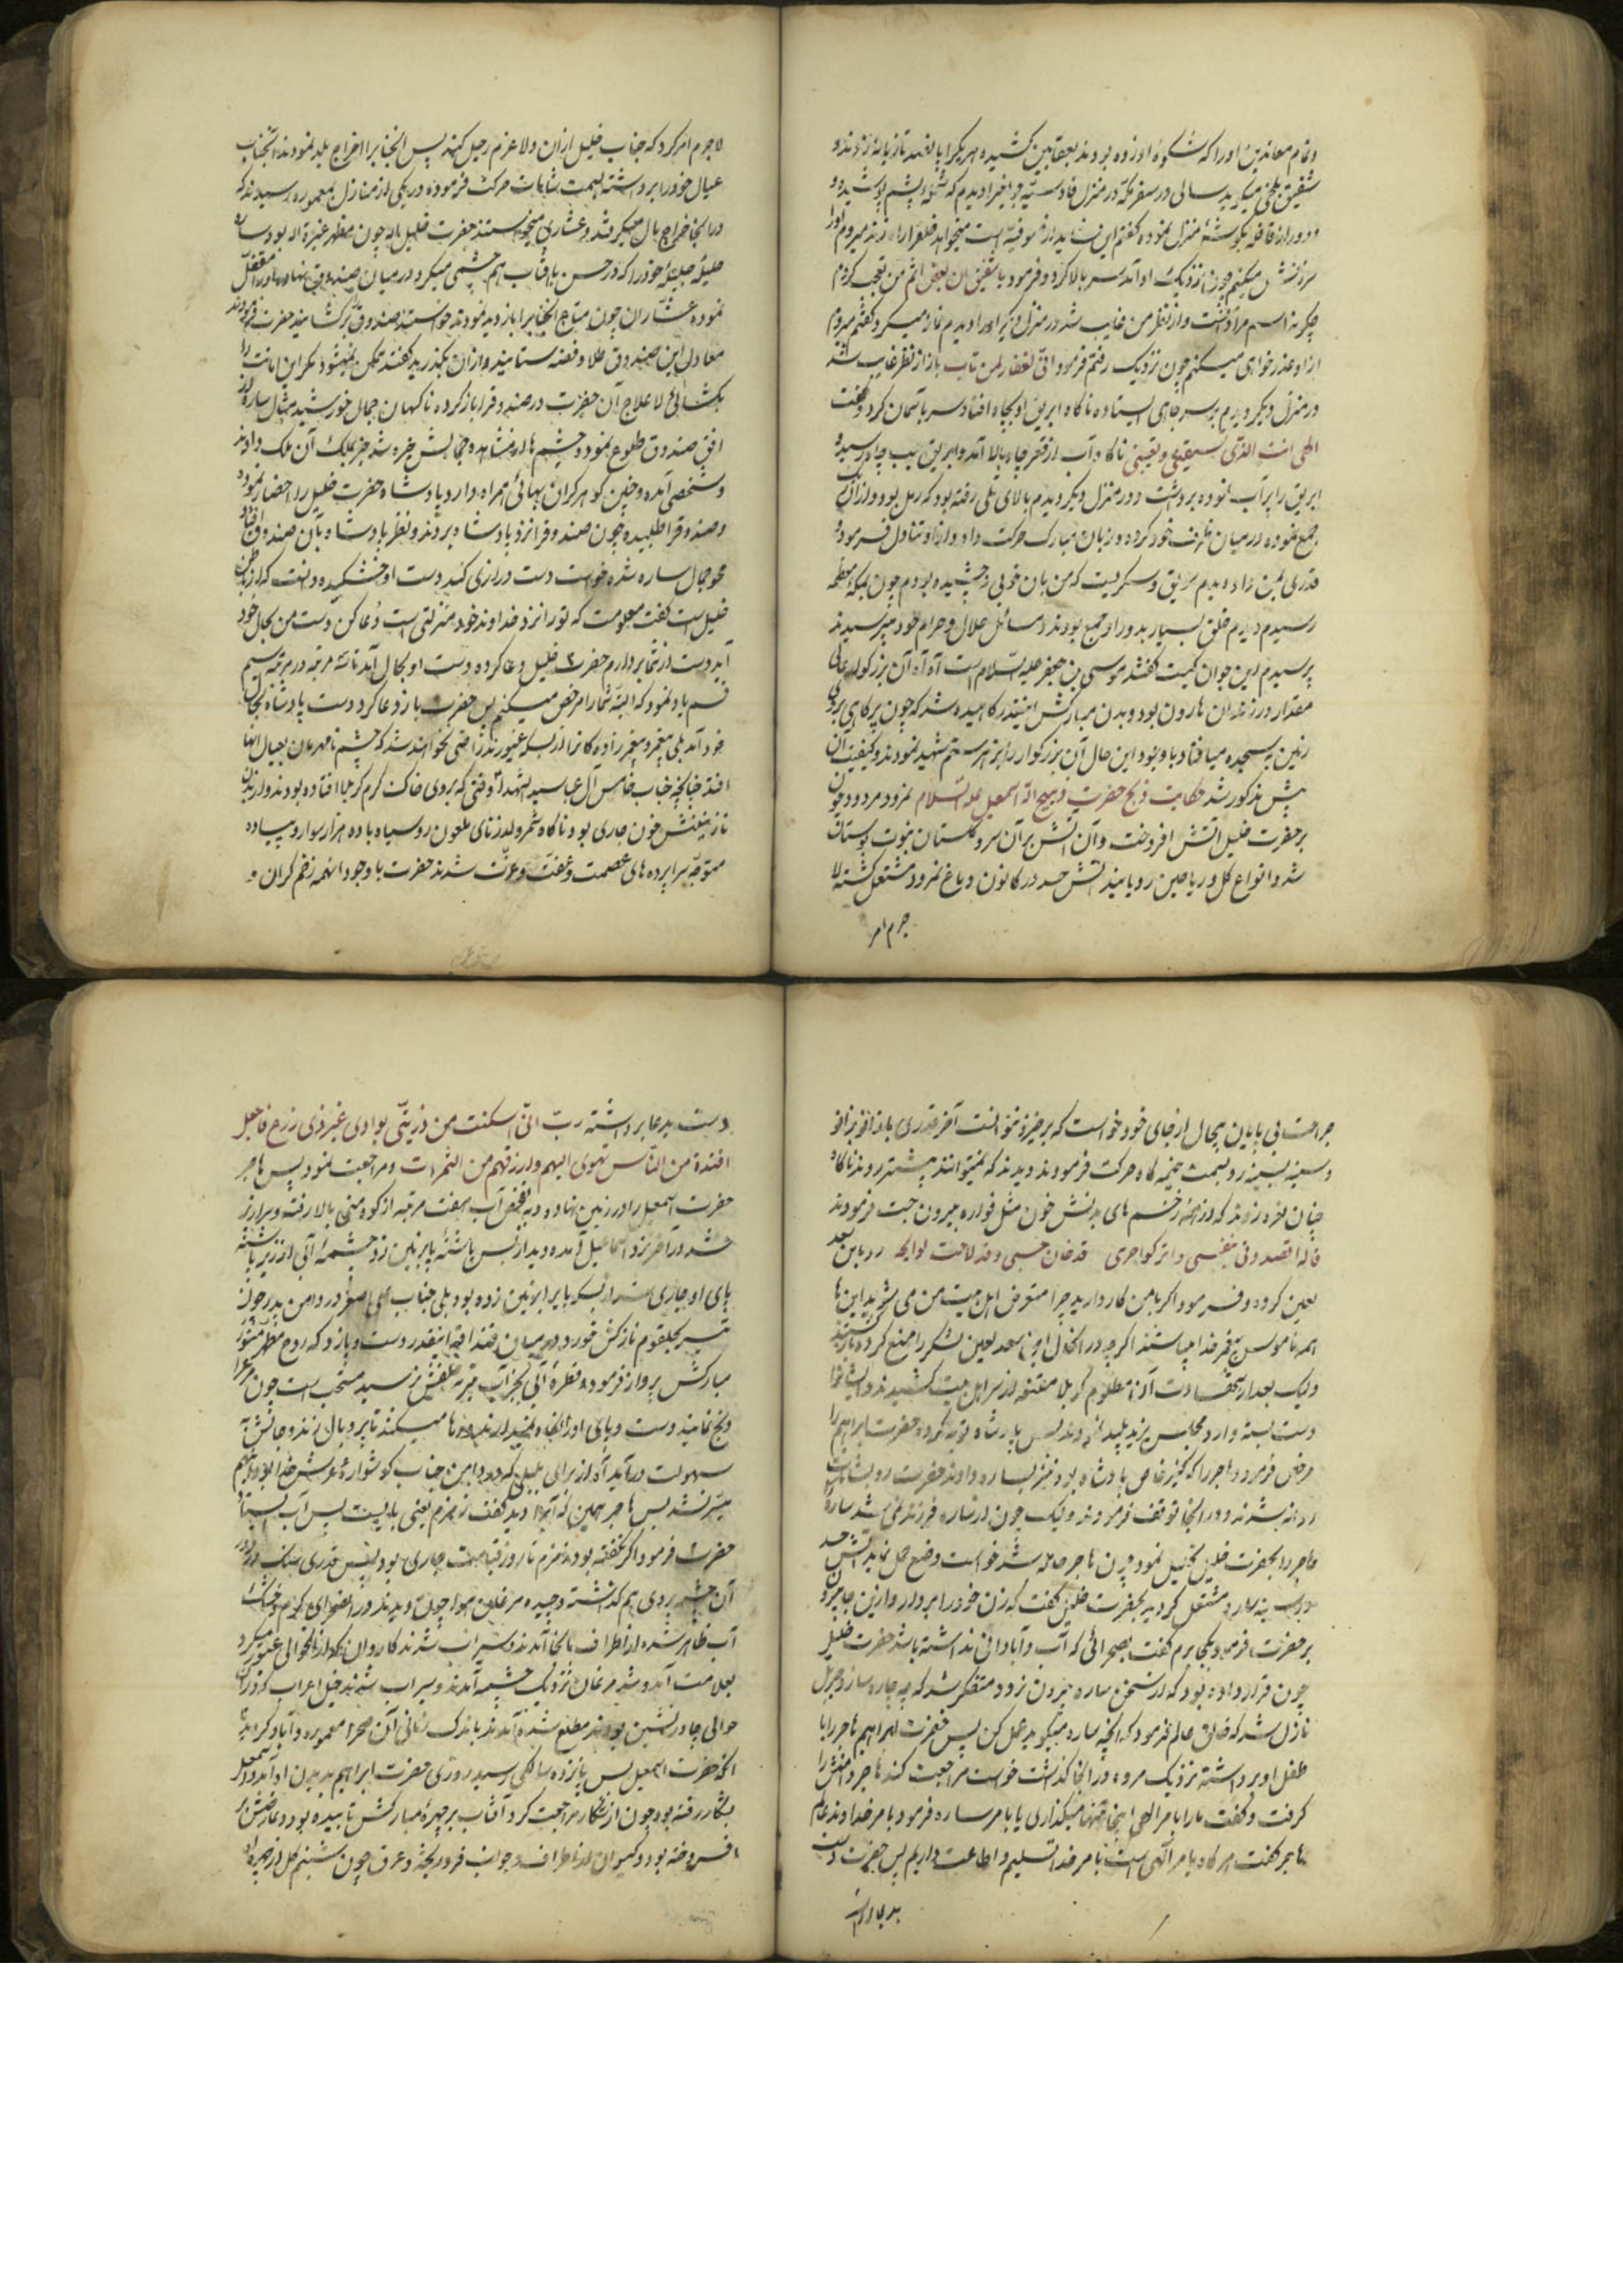 وتمام معاندین او را که شکوه او زده بودند بعقابین کشیده هر یکرا پانصد تازیانه زدند و
شقیق بلخی میگوید سالی در سفر مکه در منزل قادسیه جوانیرا دیدم که پشم پوشیده و
و دور از قافله بگوشهٔ منزل نموده گفتم این شاید از صوفیه است میخواهد میروم او را
سرزنش میکنم چون نزدیک او آمد سر بالا کرد و فرمود یا شقیق ان بعض الظن اثم من تعجب کردم
چگونه اسم مرا دانست و از نظر من غایب شد در منزل دیگر او را دیدم نماز میکرد گفتم میروم
از او عذرخواهی میکنم چون نزدیک رفتم فرمود انی لغفار لمن تاب باز از نظر غایب شد
در منزل دیگر دیدم بر سر چاهی ایستاده ناگاه ابریق او بچاه افتاد سر بآسمان کرد و گفت
الهی انت الذی ناگاه آب از قعر چاه بالا آمد و ابریق بلب چاه رسید و
ابریق را پر آب نموده برداشت و در منزل دیگر دیدم بالای تلی رفته بود که رمل بود و از آن ریگ
جمع نموده در میان ظرف خود کرده و زبان مبارک حرکت داد و از او تناول فرمود و
قدری بمن داد دیدم سویق و شکریست که من بآن خوبی نچشیده بودم چون بمکه معظمه
رسیدم دیدم خلق بسیار بدور او جمع بودند و مسائل حلال و حرام خود میپرسیدند
پرسیدم این جوان کیست گفتند موسی بن جعفر علیه السلام است آه آه آن بزرگوار عالی
مقدار در زندان هارون بود و بدن مبارکش اینقدر کاهیده شد که چون پر کاهی بر روی
زمین بسجده میافتاد با وجود این حال آن بزرگوار را بزهر ستم شهید نمودند و کیفیت آن
پیش مذکور شد حکایت ذبح حضرت ذبیح الله اسمعیل علیه السلام نمرود مردود چون
بر حضرت خلیل آتش افروخت و آن آتش بر آن سرو گلستان نبوت بوستان
شد و انواع گل و ریاحین رویانید آتش حسد در کانون دماغ نمرود مشتعل گشته لا
جرم امر
لاجرم امر کرد که جناب خلیل از آن ولا عزم رحیل کند پس آنجنابرا اخراج بلد نمودند آنجناب
عیال خود را برداشته بسمت شامات حرکت فرموده در یکی از منازل بمعموره رسیدند که
در آنجا خراج مال میگرفتند و عشاری میخواستند حضرت خلیل الله چون مظهر غیرة الله بود ساره
حلیلهٔ جلیلهٔ خود را که در حسن با آفتاب هم چشمی میکرد در میان صندوقی نهاده و در او را مقفل
نموده عشاران چون متاع آنجنابرا بازدید نمودند خواستند صندوق را گشایند حضرت فرمودند
معادل این صندوق طلا و نقره ستانید و از آن بگذرید گفتند ممکن نمیشود مگر این امانت را
بگشائی لاعلاج آنحضرت در صندوقرا باز کرده ناگهان جمال خورشید مثال ساره از
افق صندوق طلوع نمود و چشمها از مشاهده جمالش خیره شد خبر بملک آن ملک دادند
و شخصی آمده و چنین گوهر گران بهائی همراه دارد پادشاه حضرت خلیل را احضار نموده
و صندوقرا طلبیده چون صندوقرا نزد پادشاه بردند و نظر پادشاه بآن صندوق افتاد
محو جمال ساره شده خواست دست درازی کند دست او خشکیده دانست که از باطن
خلیل است گفت معلومست که تو را نزد خداوند خود منزلتی است دعا کن دست من بحال خود
آید دست از شما بردارم حضرت خلیل دعا کرده دست او بحال آمد تا سه مرتبه در مرتبه سیم
قسم یاد نمود که البته شما را مرخص میکنم پس حضرت باز دعا کرد دست پادشاه بحال
خود آمد بلی پیغمبر و پیغمبرزاده گان از بسکه غیورند راضی نخواهند شد که چشم نامحرمان بعیال آنها
افتد چنانچه جناب خامس آل عبا سید الشهدا وقتی که بروی خاک گرم کربلا افتاده بودند و از بدن
نازنینش خون جاری بود ناگاه شمر ولدزنای ملعون روسیاه با ده هزار سوار و پیاده
متوجه سراپرده های عصمت و عفت و عزت شدند حضرت با وجود آنهمه زخم گران و
جراحت بی پایان بیحال از جای خود خواست که برخیزد نتوانست آخر قدری با زانو بزانو
و سینه بسینه رو بسمت خیمه گاه حرکت فرمودند دیدند که نمیتوانند پیشتر روند ناگاه
چنان نعره زدند که از همهٔ زخم های بدنش خون مثل فواره بیرون جست فرمودند
قال اقصدونی بنفسی واترکوا حرمی قد حان حینی وقد لاحت لوایحه رو باین سعد
لعین کرده و فرمود اگر با من کار دارید چرا متعرض اهل بیت من می شوید اینها
همه ناموس پیغمبر خدا میباشند اگرچه در آنحال ابن سعد لعین لشکر را منع کرده بازگشتند
ولیک بعد از شهادت آن مظلوم کربلا مقنعه از سر اهل بیت کشیدند و ایشانرا
دست بسته وارد مجلس یزید پلید نمودند پس پادشاه توبه کرده حضرت ابراهیم را
مرخص فرمود و هاجر را که کنیز خاص پادشاه بود نیز بساره دادند حضرت رو بشامات
روانه شدند و در آنجا توقف فرمودند ولیک چون از ساره فرزند نمی شد ساره
هاجر را بحضرت خلیل تحلیل نمود چون هاجر حامله شد خواست وضع حمل نماید آتش حسد
در سینه ساره مشتعل گردید بحضرت خلیل گفت که زن خود را بردار و ازین جا برو
بر حضرت فرمود بکجا برم گفت بصحرائی که آب و آبادانی نداشته باشد حضرت خلیل
چون قرار داده بود که از سخن ساره بیرون نرود متفکر شد که چه چاره سازد جبرئیل
نازل شد که خالق عالم فرمود که آنچه ساره میگوید عمل کن پس حضرت ابراهیم هاجر را با
طفل او برداشته نزدیک مروه در آنجا گذاشت خواست مراجعت کند هاجر دامنش را
گرفت و گفت ما را بامر الهی اینجا تنها میگذاری یا بامر ساره فرمود بامر خداوند عالم
هاجر گفت هرگاه بامر الهی است بامر خدا تسلیم و اطاعت داریم پس حضرت دست
بدعا برداشته
دست بدعا برداشته رب انی اسکنت من ذریتی بواد غیر ذی زرع فاجعل
افئدة من الناس تهوی الیهم وارزقهم من الثمرات و مراجعت نمود پس هاجر
حضرت اسمعیل را در زمین نهاده و به تفحص آب هفت مرتبه از کوه منی بالا رفته و سرازیر
شد در آخر نزد اسماعیل آمده دید از بس پاشنهٔ پا بزمین زد چشمهٔ آبی از زیر پاشنه
پای او جاری شد از بسکه پا بر زمین زده بود بلی جناب علی اصغر در دامن پدر چون
تیر بحلقوم نازکش خورد در میان قنداقه اینقدر دست و پا زد که روح مطهر منور
مبارکش پرواز فرمود و قطرهٔ آبی بجز آب تیر به حلقش نرسید مستحب است چون مرغرا
ذبح نمایند دست و پای او را نگاه نمیدارند رها میکنند تا پر و بال زند و جانش به
سهولت درآید آه از برای بلبلی که در دامن جناب گوشوارهٔ عرش خدا بود و آنهم
میسر نشد پس هاجر همین که آنرا دید گفت زمزم یعنی بایست پس آب بایستاد
حضرت فرمود اگر نگفته بود زمزم تا روز قیامت جاری بود پس قدری سنگ بر دور
آن چشمه بروی هم گذاشته و چیده مرغان هوا چون دیدند در آنصحرای گرم و خشک
آب ظاهر شده از اطراف بآنجا آمدند و سیراب شدند کاروان که از آنحوالی عبور میکرد
بعلامت آمد و شد مرغان نزدیک چشمه آمدند و سیراب شدند خیل اعراب که در آن
حوالی چادرنشین بودند مطلع شده آمدند باندک زمانی آن صحرا معموره و آباد گردید
آنحضرت اسمعیل بسن پانزده سالگی رسید روزی حضرت ابراهیم بدیدن او آمد و اسمعیل
بشکار رفته بود چون از شکار مراجعت کرد آفتاب بر چهرهٔ مبارکش تابیده بود و عارضش بر
افروخته بود و گیسوان از اطراف و جوانب فرو ریخته و عرق چون شبنم گل از چهره او